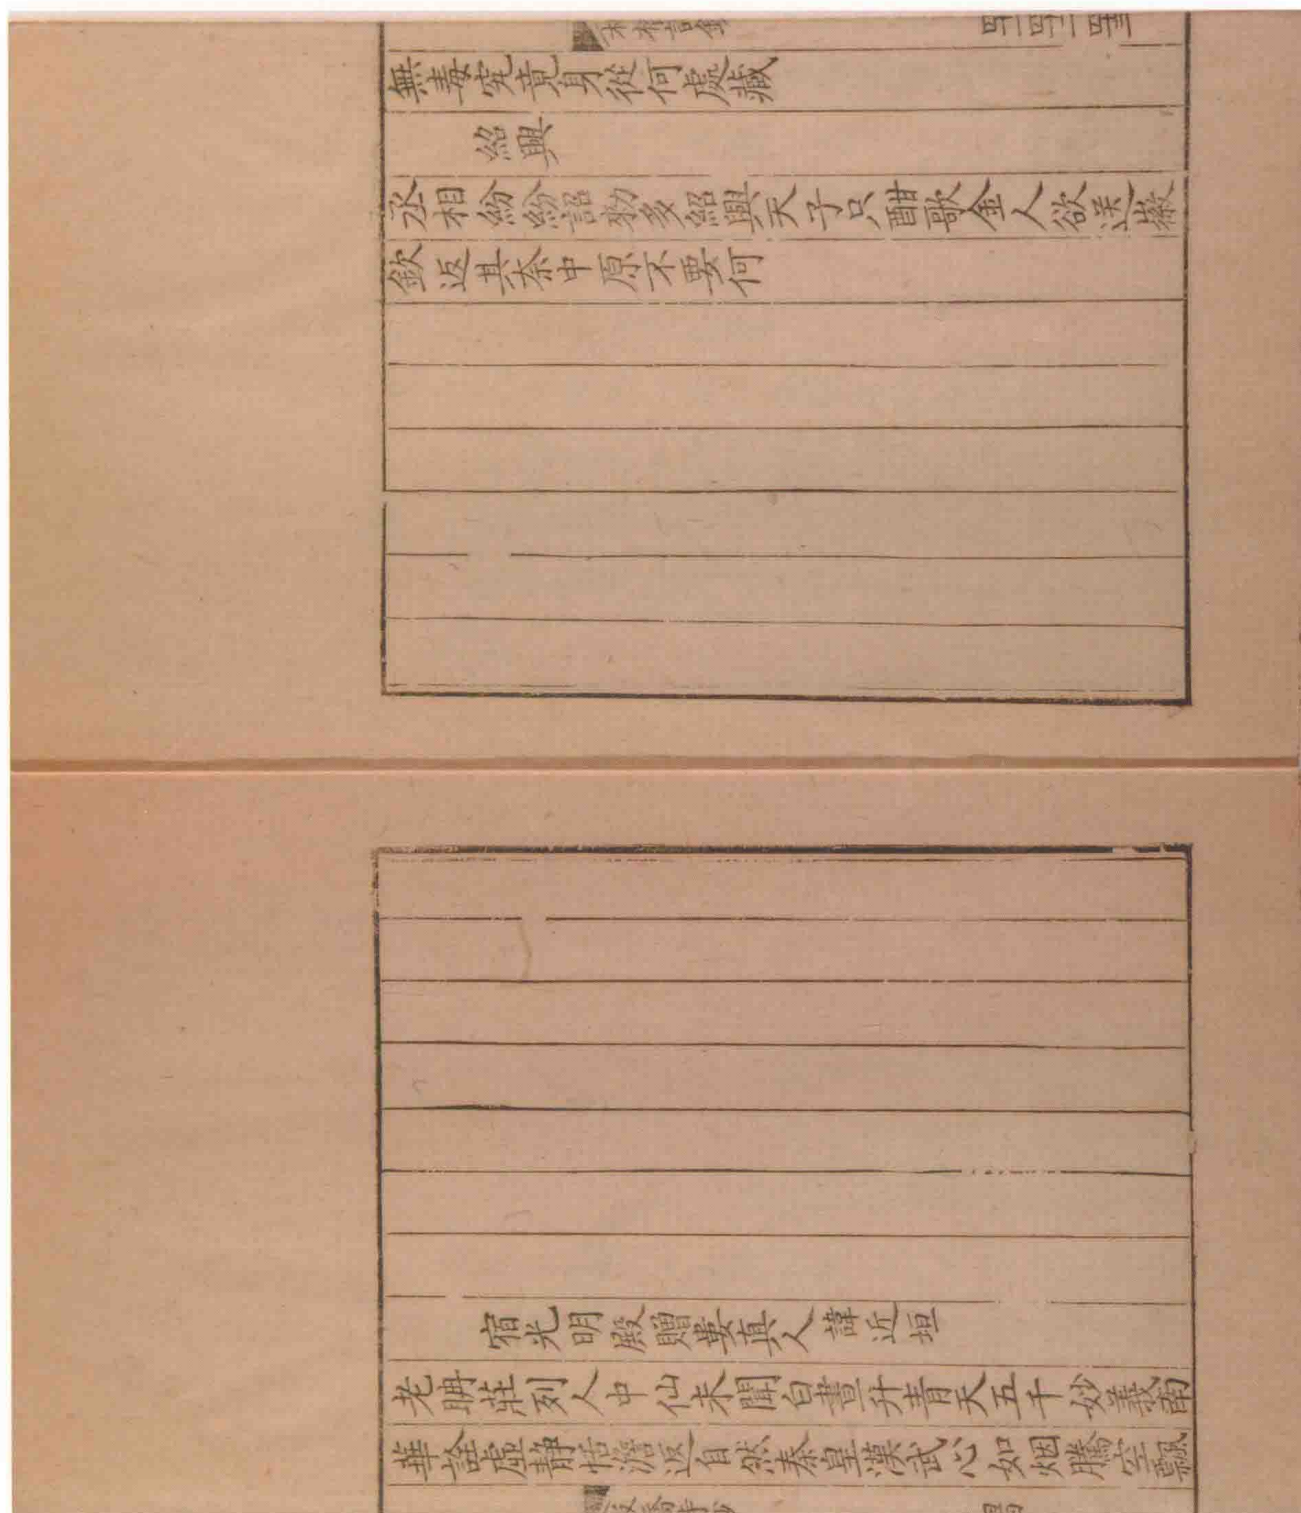 無毒究竟身從何處藏
紹興
丞相紛紛詔勅多紹興天子只酣歌金人欲送徽
欽返其奈中原不要何
宿光明殿贈婁真人諱近垣
老聃莊列人中仙未聞白晝升青天五千妙義南
華詮虛靜恬澹返自然秦皇漢武心如烟騰空飄